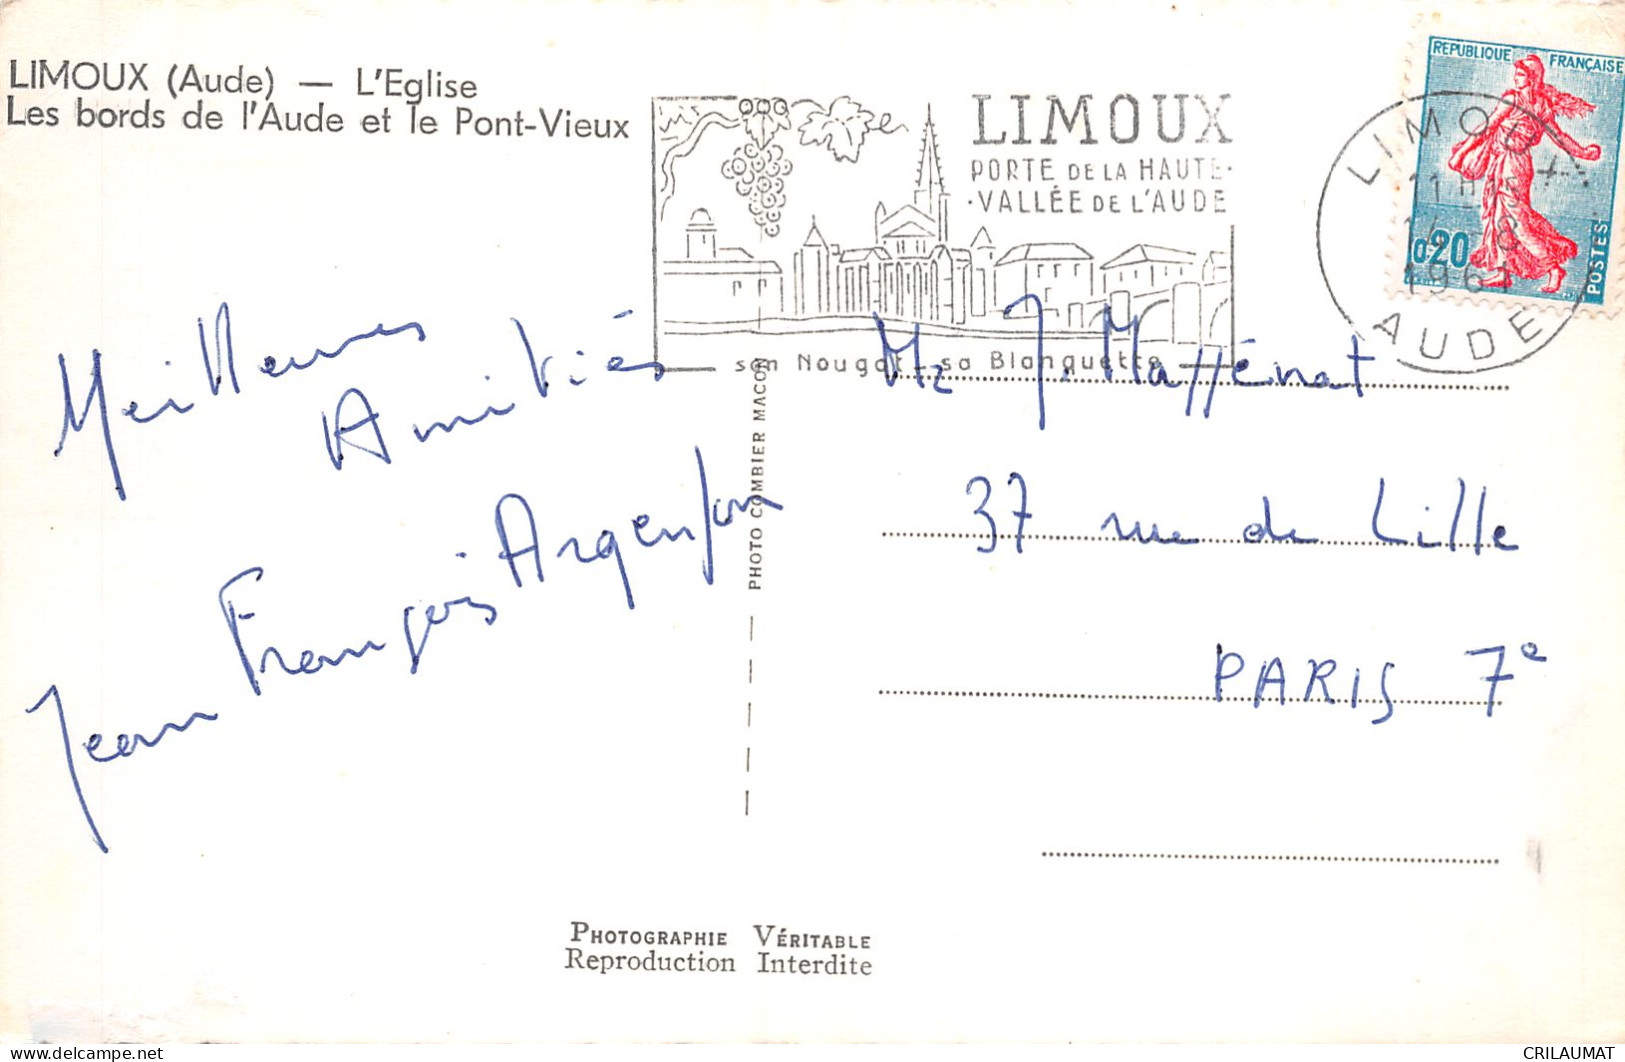 LIMOUX (Aude) — L'Eglise
Les bords de l'Aude et le Pont-Vieux
LIMOUX
PORTE DE LA HAUTE-
-VALLÉE DE L'AUDE
son Nougat _ sa Blanquette
REPUBLIQUE FRANÇAISE
0,20
POSTES
LIMOUX
1961
AUDE
Meilleures
Amitiés
Jean François Argenson
PHOTO COMBIER MACON
Mr J. Massénat
37 rue de Lille
PARIS 7e
PHOTOGRAPHIE VÉRITABLE
Reproduction Interdite
delcampe.net
CRILAUMAT